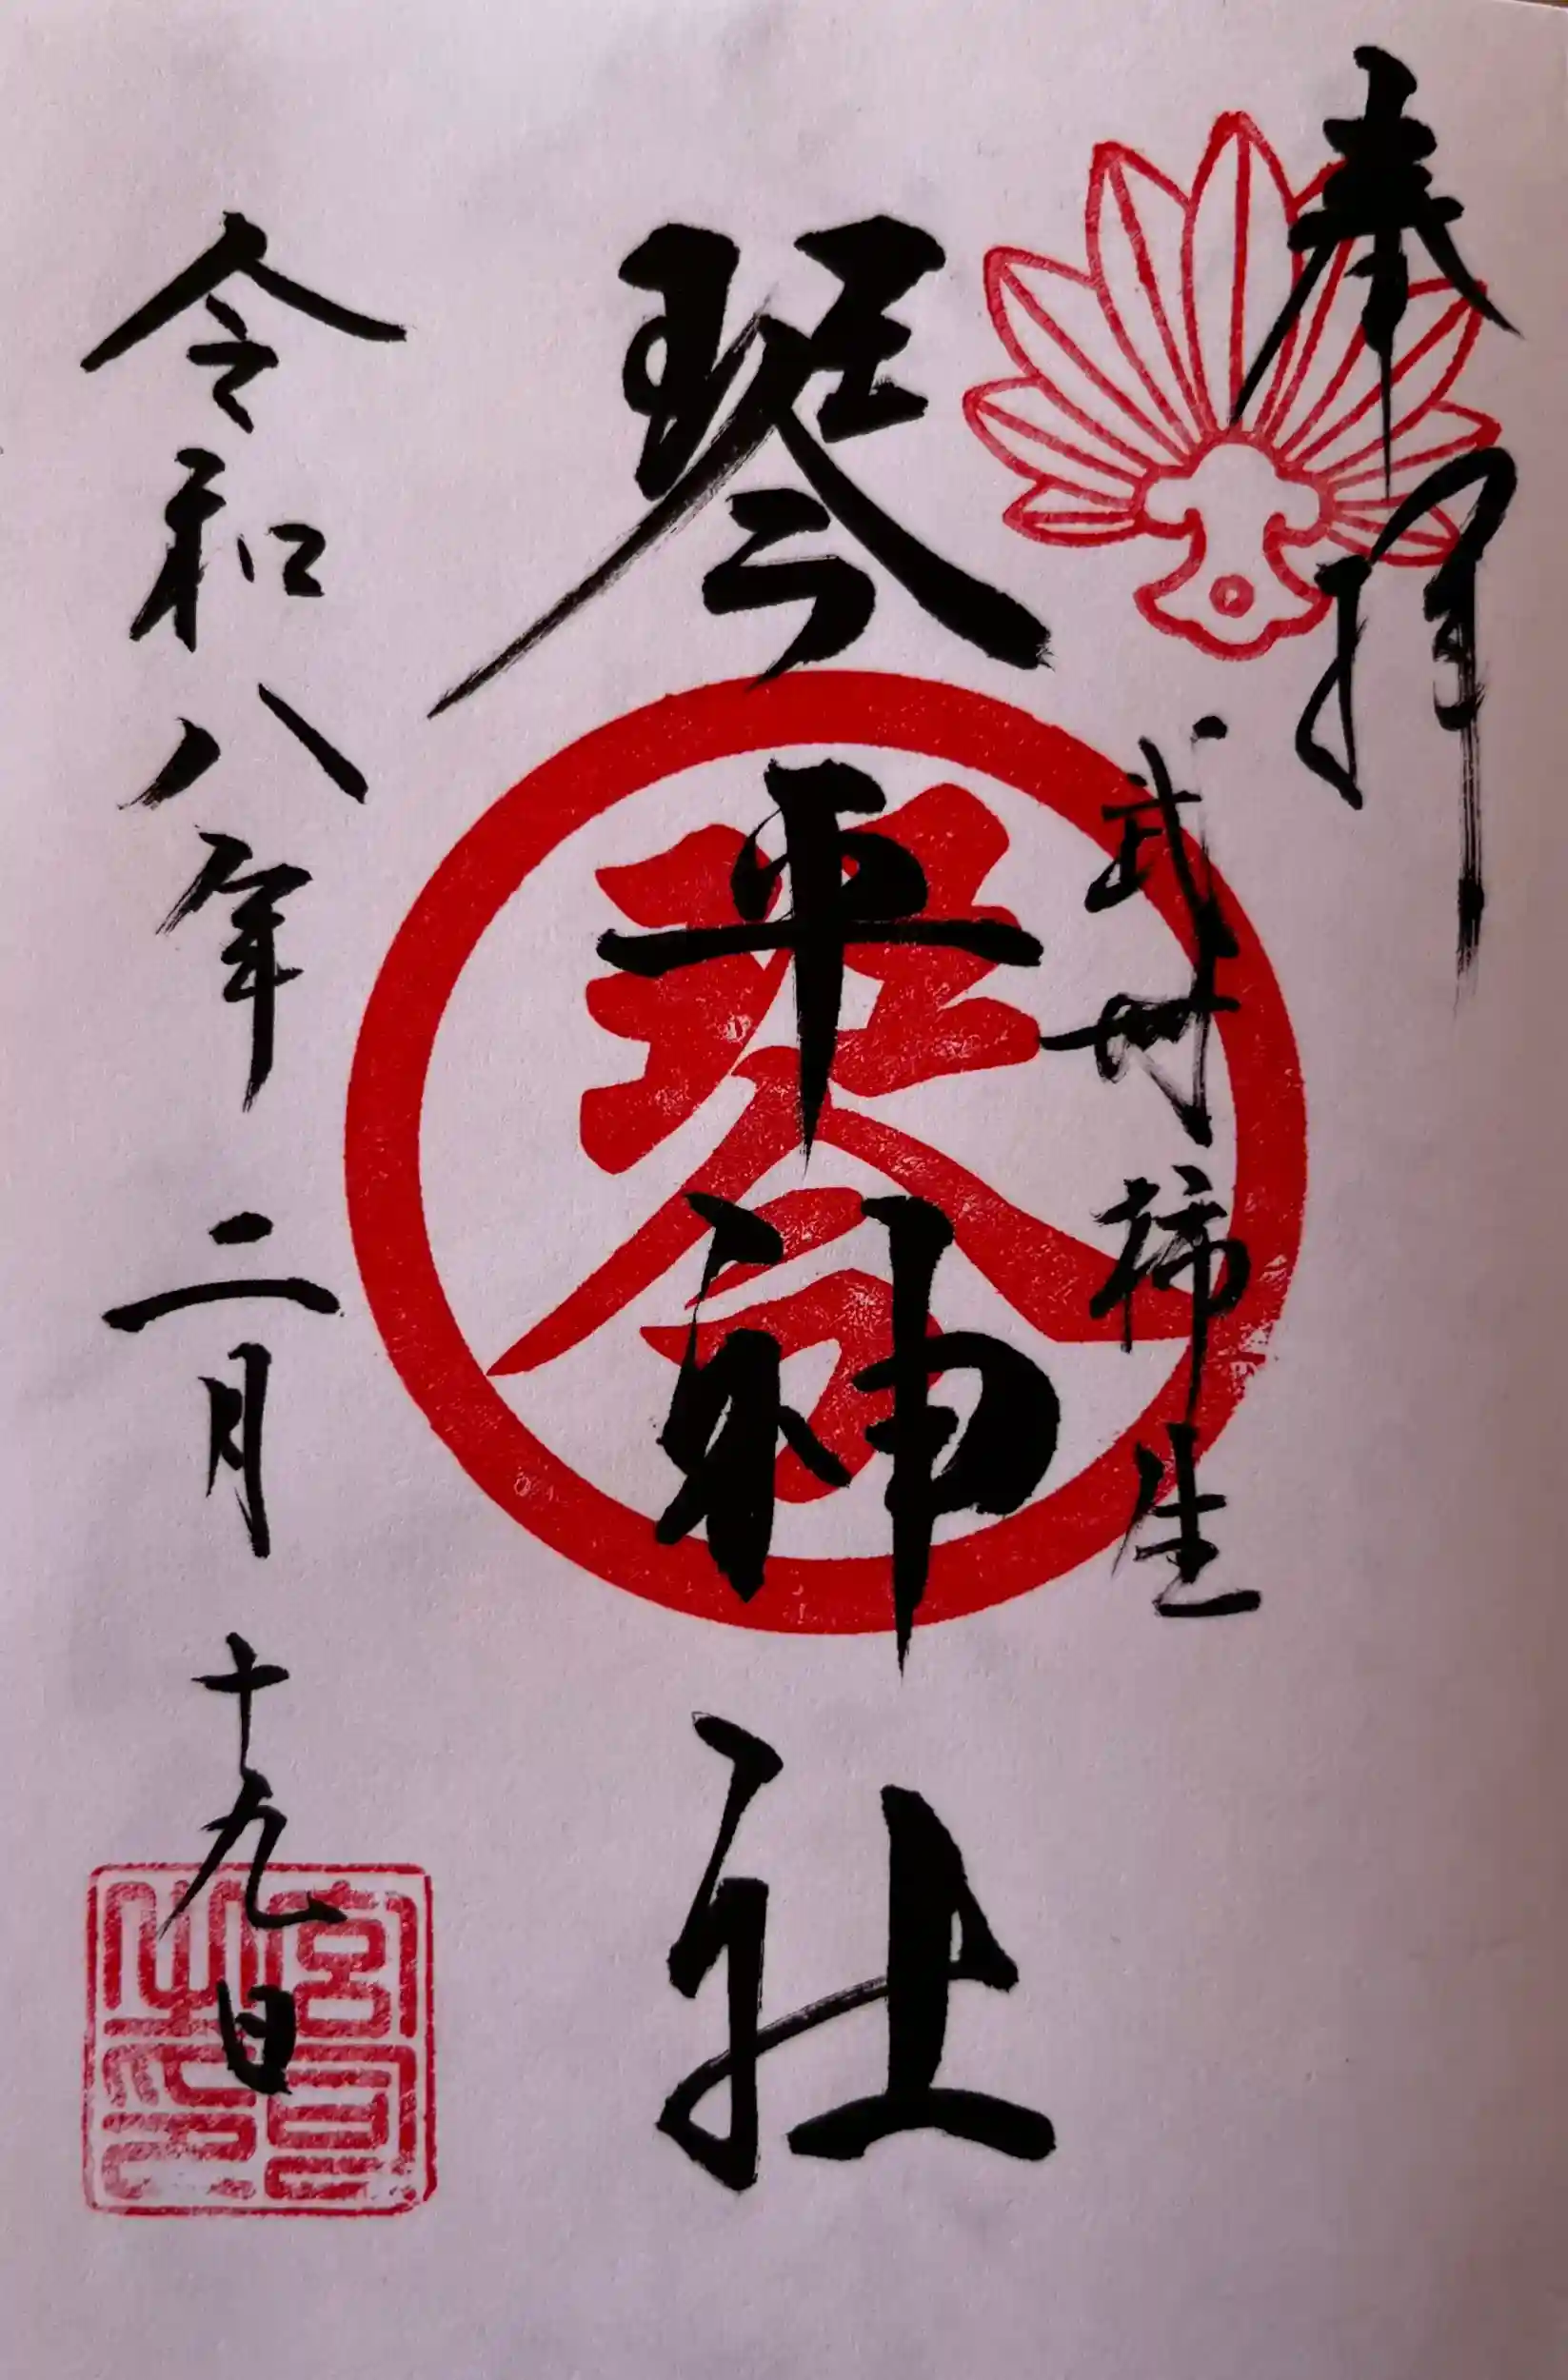 奉拝
武州柿生
琴平神社
令和八年二月十九日
宮司之印